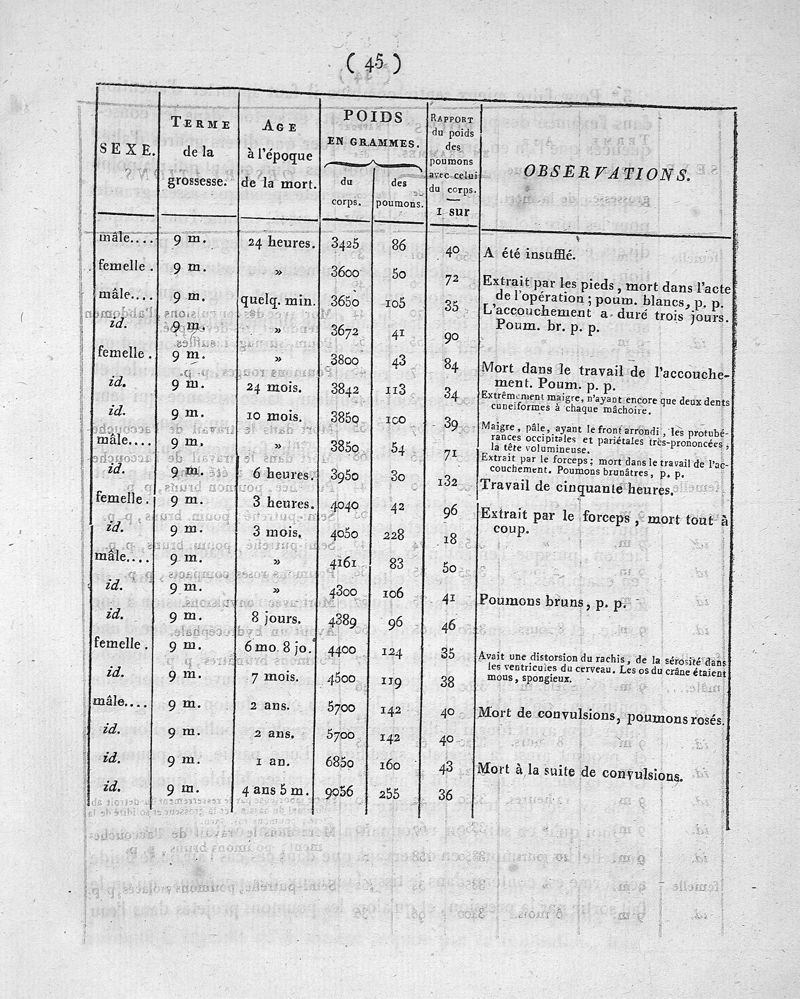 ( 45 )
SEXE. TERME de la grossesse. AGE à l'époque de la mort. POIDS EN GRAMMES. du corps. des poumons. RAPPORT du poids des poumons avec celui du corps. — 1 sur OBSERVATIONS.
mâle.... 9 m. 24 heures. 3425 86 40 A été insufflé.
femelle. 9 m. » 3600 50 72 Extrait par les pieds, mort dans l'acte
de l'opération; poum. blancs, p. p.
mâle.... 9 m. quelq. min. 3650 105 35 L'accouchement a duré trois jours.
Poum. br. p. p.
id. 9 m. » 3672 41 90
femelle. 9 m. » 3800 43 84 Mort dans le travail de l'accouche-
ment. Poum. p. p.
id. 9 m. 24 mois. 3842 113 34 Extrêmement maigre, n'ayant encore que deux dents
cuneiformes à chaque mâchoire.
id. 9 m. 10 mois. 3850 100 39 Maigre, pâle, ayant le front arrondi, les protubé-
rances occipitales et pariétales très-prononcées,
la tête volumineuse.
mâle.... 9 m. » 3850 54 71 Extrait par le forceps; mort dans le travail de l'ac-
couchement. Poumons brunâtres, p. p.
id. 9 m. 6 heures. 3950 30 132 Travail de cinquante heures.
femelle. 9 m. 3 heures. 4040 42 96 Extrait par le forceps, mort tout à
coup.
id. 9 m. 3 mois. 4050 228 18
mâle.... 9 m. » 4161 83 50
id. 9 m. » 4300 106 41 Poumons bruns, p. p.
id. 9 m. 8 jours. 4389 96 46
femelle. 9 m. 6 mo. 8 jo. 4400 124 35 Avait une distorsion du rachis, de la sérosité dans
les ventricules du cerveau. Les os du crâne étaient
mous, spongieux.
id. 9 m. 7 mois. 4500 119 38
mâle.... 9 m. 2 ans. 5700 142 40 Mort de convulsions, poumons rosés.
id. 9 m. 2 ans. 5700 142 40
id. 9 m. 1 an. 6850 160 43 Mort à la suite de convulsions.
id. 9 m. 4 ans 5 m. 9056 255 36